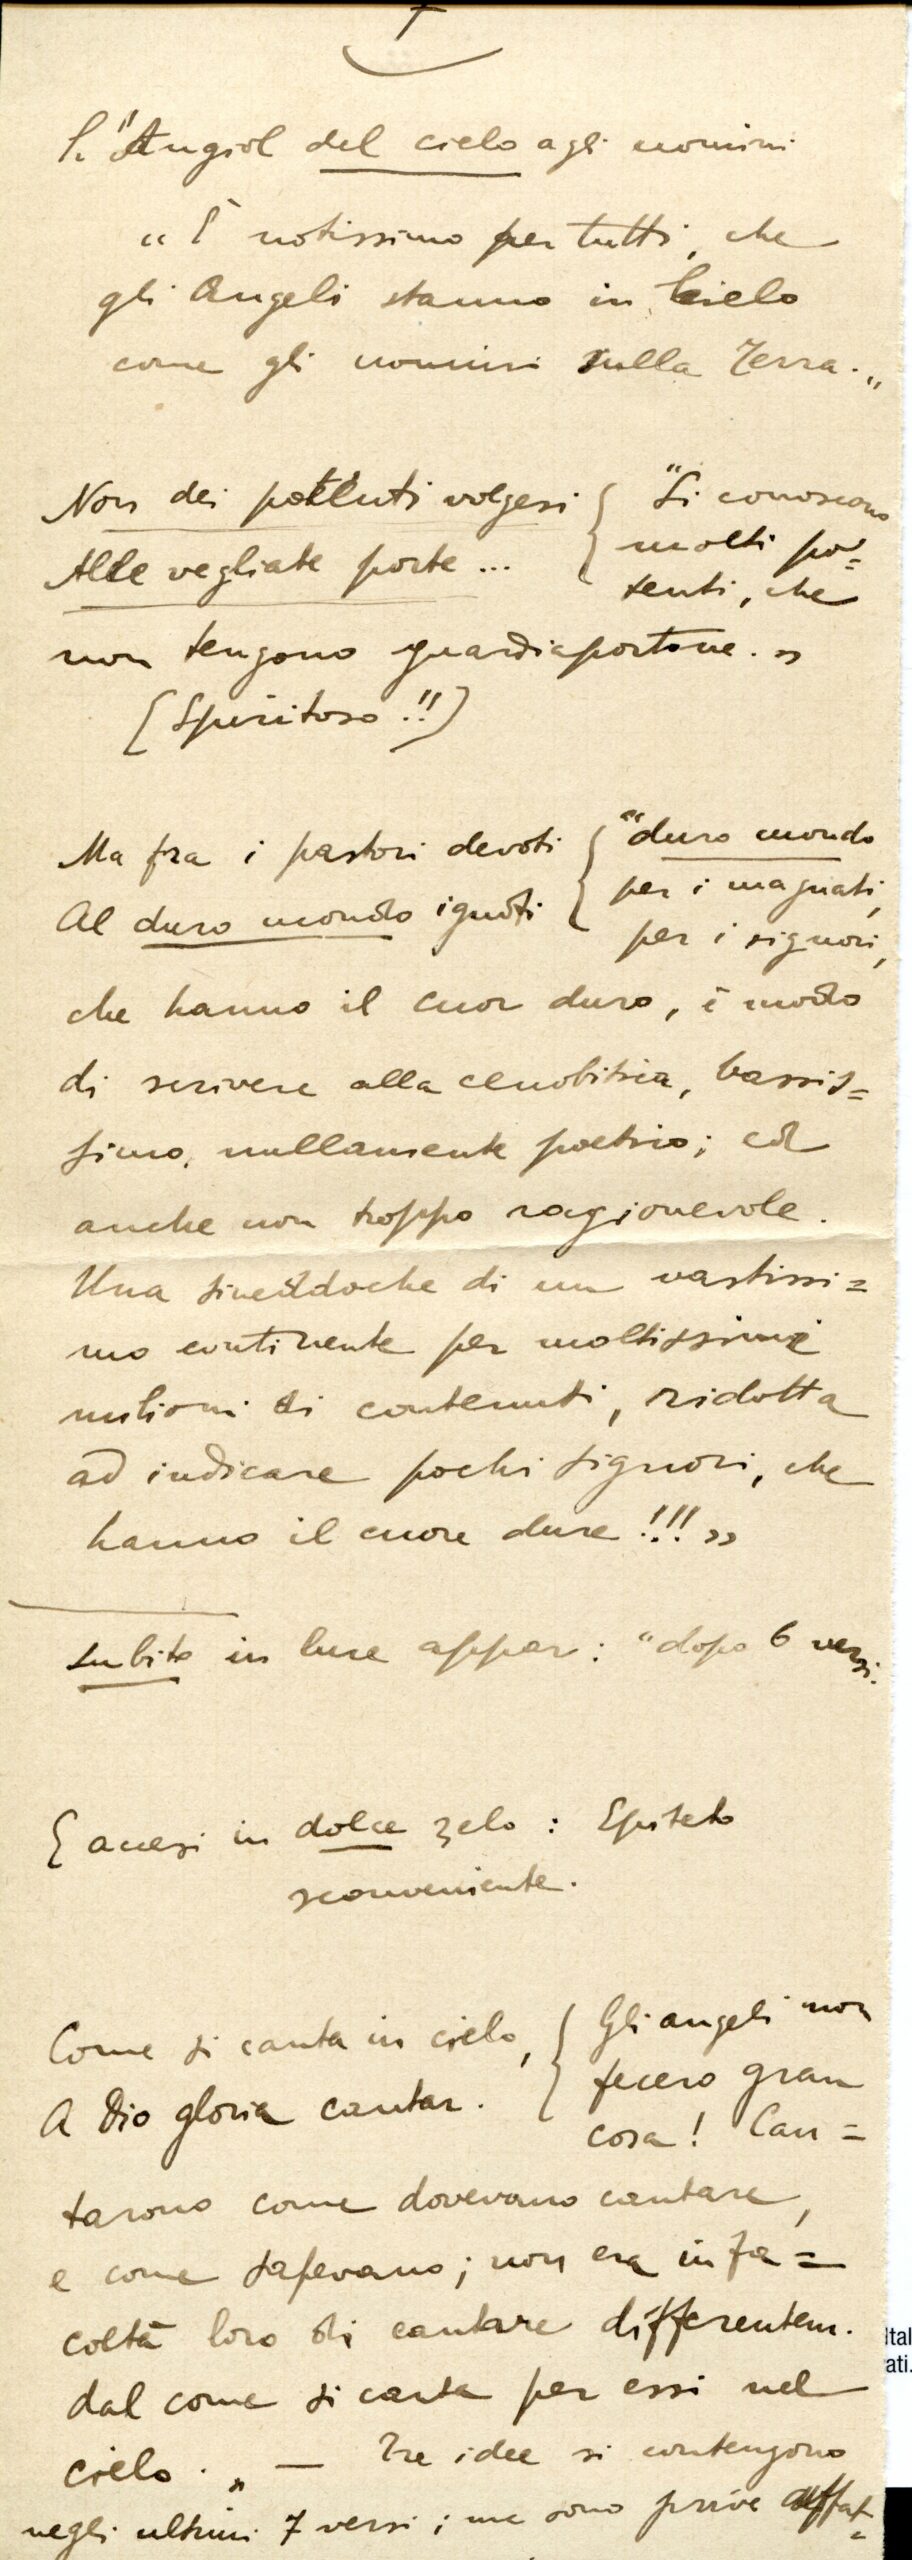 †
L'"Angiol del cielo agli uomini
"È notissimo per tutti, che
gli Angeli stanno in Cielo
come gli uomini sulla Terra."
Non dei potenti volgesi { "Si conoscono
Alle vegliate porte ... molti po=
tenti, che
non tengono guardiaportone."
(Spiritoso!!)
Ma fra i pastori devoti { "duro mondo
Al duro mondo ignoti per i magnati,
per i signori,
che hanno il cuor duro, è modo
di scrivere alla cenobitica, bassis=
simo, nullamente poetico; ed
anche non troppo ragionevole.
Una sineddoche di un vastissi=
mo continente per moltissimi
milioni di contenuti, ridotta
ad indicare pochi signori, che
hanno il cuore duro!!!"
Subito in luce appar: "dopo 6 versi.
E accesi in dolce zelo: Epiteto
sconveniente.
Come si canta in cielo, { Gli angeli non
A Dio gloria cantar. fecero gran
cosa! Can=
tarono come dovevano cantare,
e come sapevano; non era in fa=
coltà loro di cantare differentem.
dal come si canta per essi nel
cielo." — Tre idee si contengono
negli ultimi 7 versi; ma sono prive affat=
Ital
ati.